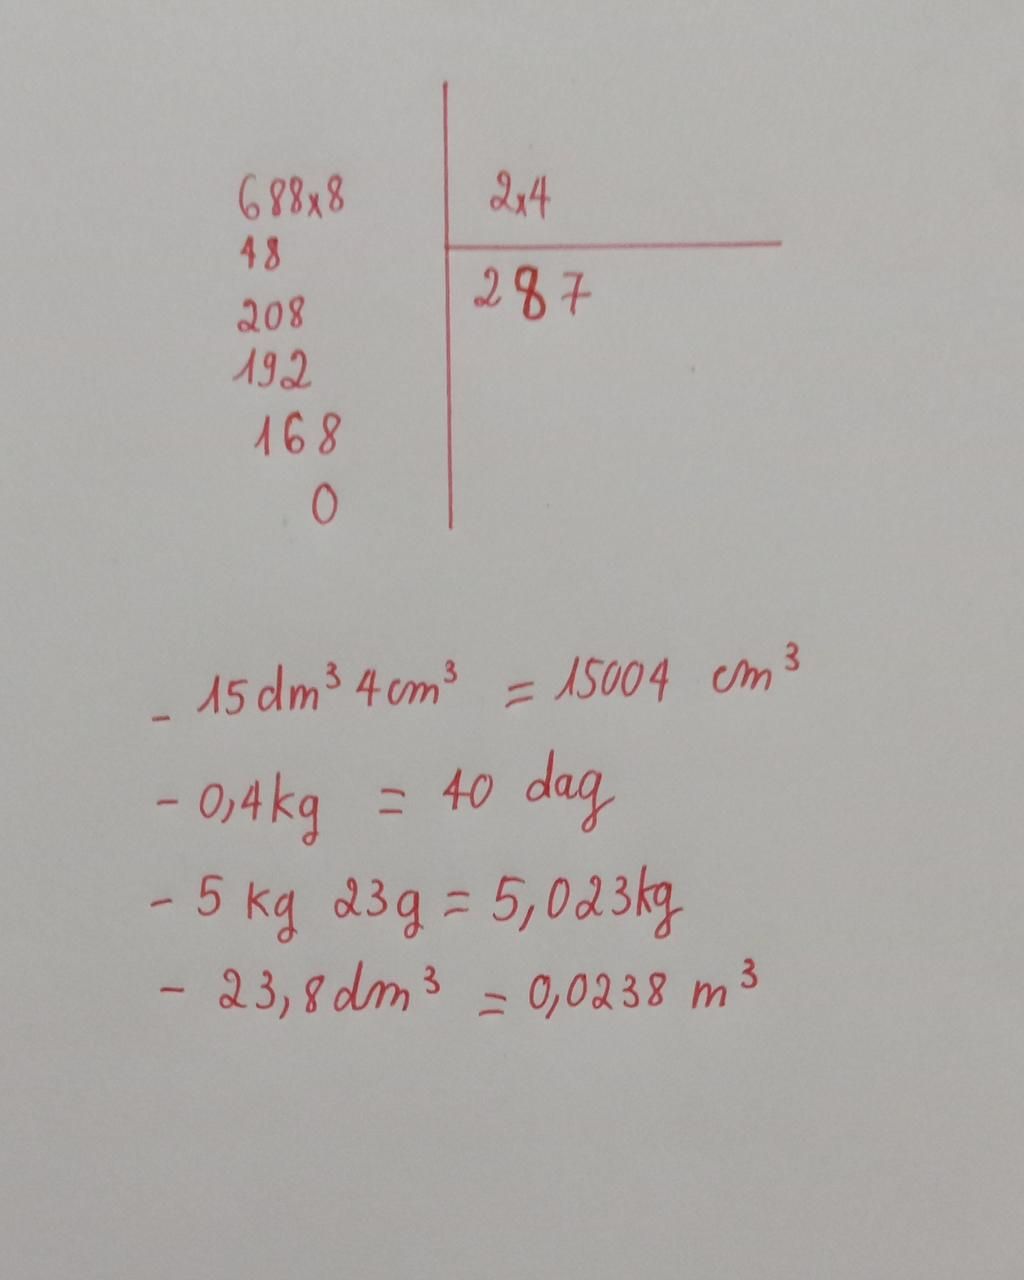 688x8 2x4
48 287
208
192
168
0
- 15dm³ 4cm³ = 15004 cm³
- 0,4kg = 40 dag
- 5 kg 23g = 5,023kg
- 23,8dm³ = 0,0238 m³